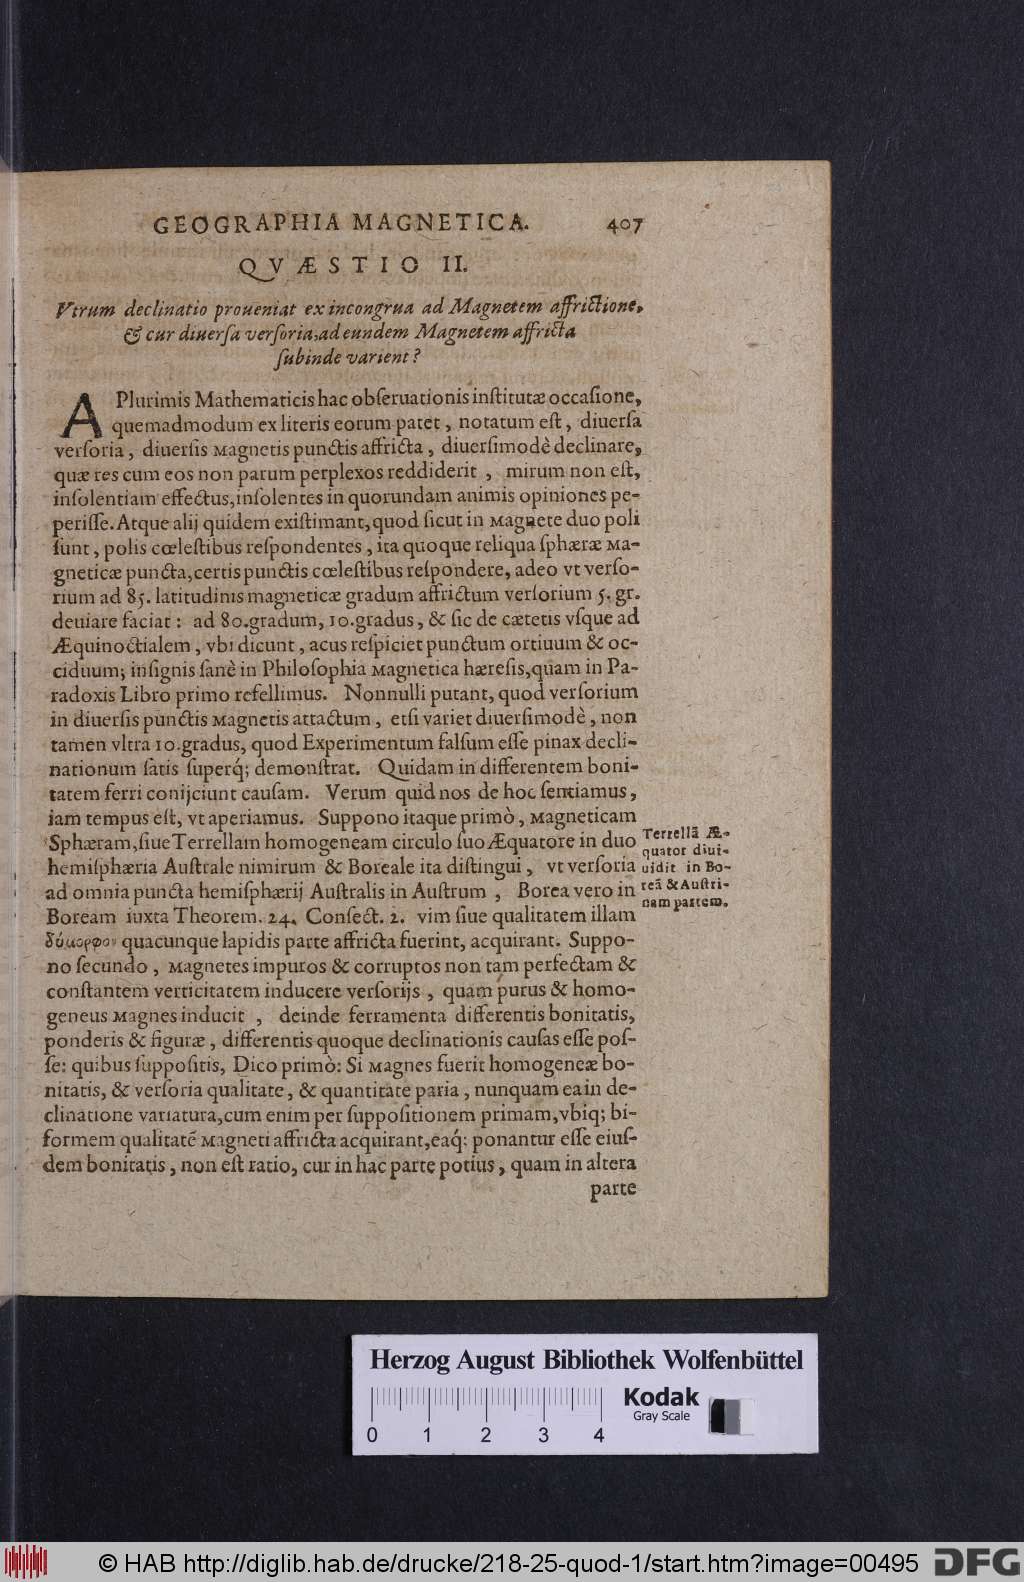 GEOGRAPHIA MAGNETICA. 407
QVÆSTIO II.
Vtrum declinatio proueniat ex incongrua ad Magnetem affrictione,
& cur diuerſa verſoria, ad eundem Magnetem affricta
ſubinde varient?
A Plurimis Mathematicis hac obſeruationis inſtitutæ occaſione,
quemadmodum ex literis eorum patet, notatum eſt, diuerſa
verſoria, diuerſis Magnetis punctis affricta, diuerſimodè declinare,
quæ res cum eos non parum perplexos reddiderit, mirum non eſt,
inſolentiam effectus, inſolentes in quorundam animis opiniones pe-
periſſe. Atque alij quidem exiſtimant, quod ſicut in Magnete duo poli
ſunt, polis cœleſtibus reſpondentes, ita quoque reliqua ſphæræ Ma-
gneticæ puncta, certis punctis cœleſtibus reſpondere, adeo vt verſo-
rium ad 85. latitudinis magneticæ gradum affrictum verſorium 5. gr.
deuiare faciat: ad 80. gradum, 10. gradus, & ſic de cætetis vſque ad
Æquinoctialem, vbi dicunt, acus reſpiciet punctum ortiuum & oc-
ciduum; inſignis ſanè in Philoſophia Magnetica hæreſis, quam in Pa-
radoxis Libro primo refellimus. Nonnulli putant, quod verſorium
in diuerſis punctis Magnetis attactum, etſi variet diuerſimodè, non
tamen vltra 10. gradus, quod Experimentum falſum eſſe pinax decli-
nationum ſatis ſuperq́; demonſtrat. Quidam in differentem boni-
tatem ferri conijciunt cauſam. Verum quid nos de hoc ſentiamus,
iam tempus eſt, vt aperiamus. Suppono itaque primò, Magneticam
Sphæram, ſiue Terrellam homogeneam circulo ſuo Æquatore in duo
hemiſphæria Auſtrale nimirum & Boreale ita diſtingui, vt verſoria
ad omnia puncta hemiſphærij Auſtralis in Auſtrum, Borea vero in
Boream iuxta Theorem. 24. Conſect. 2. vim ſiue qualitatem illam
δύμορφον quacunque lapidis parte affricta fuerint, acquirant. Suppo-
no ſecundo, Magnetes impuros & corruptos non tam perfectam &
conſtantem verticitatem inducere verſorijs, quam purus & homo-
geneus Magnes inducit, deinde ferramenta differentis bonitatis,
ponderis & figuræ, differentis quoque declinationis cauſas eſſe poſ-
ſe: quibus ſuppoſitis, Dico primò: Si Magnes fuerit homogeneæ bo-
nitatis, & verſoria qualitate, & quantitate paria, nunquam ea in de-
clinatione variatura, cum enim per ſuppoſitionem primam, vbiq; bi-
formem qualitatẽ Magneti affricta acquirant, eaq́; ponantur eſſe eiuſ-
dem bonitatis, non eſt ratio, cur in hac parte potius, quam in altera
parte
Terrellã Æ-
quator diui-
uidit in Bo-
reã & Auſtri-
nam partem.
Herzog August Bibliothek Wolfenbüttel
0 1 2 3 4
Kodak
Gray Scale
© HAB http://diglib.hab.de/drucke/218-25-quod-1/start.htm?image=00495
DFG